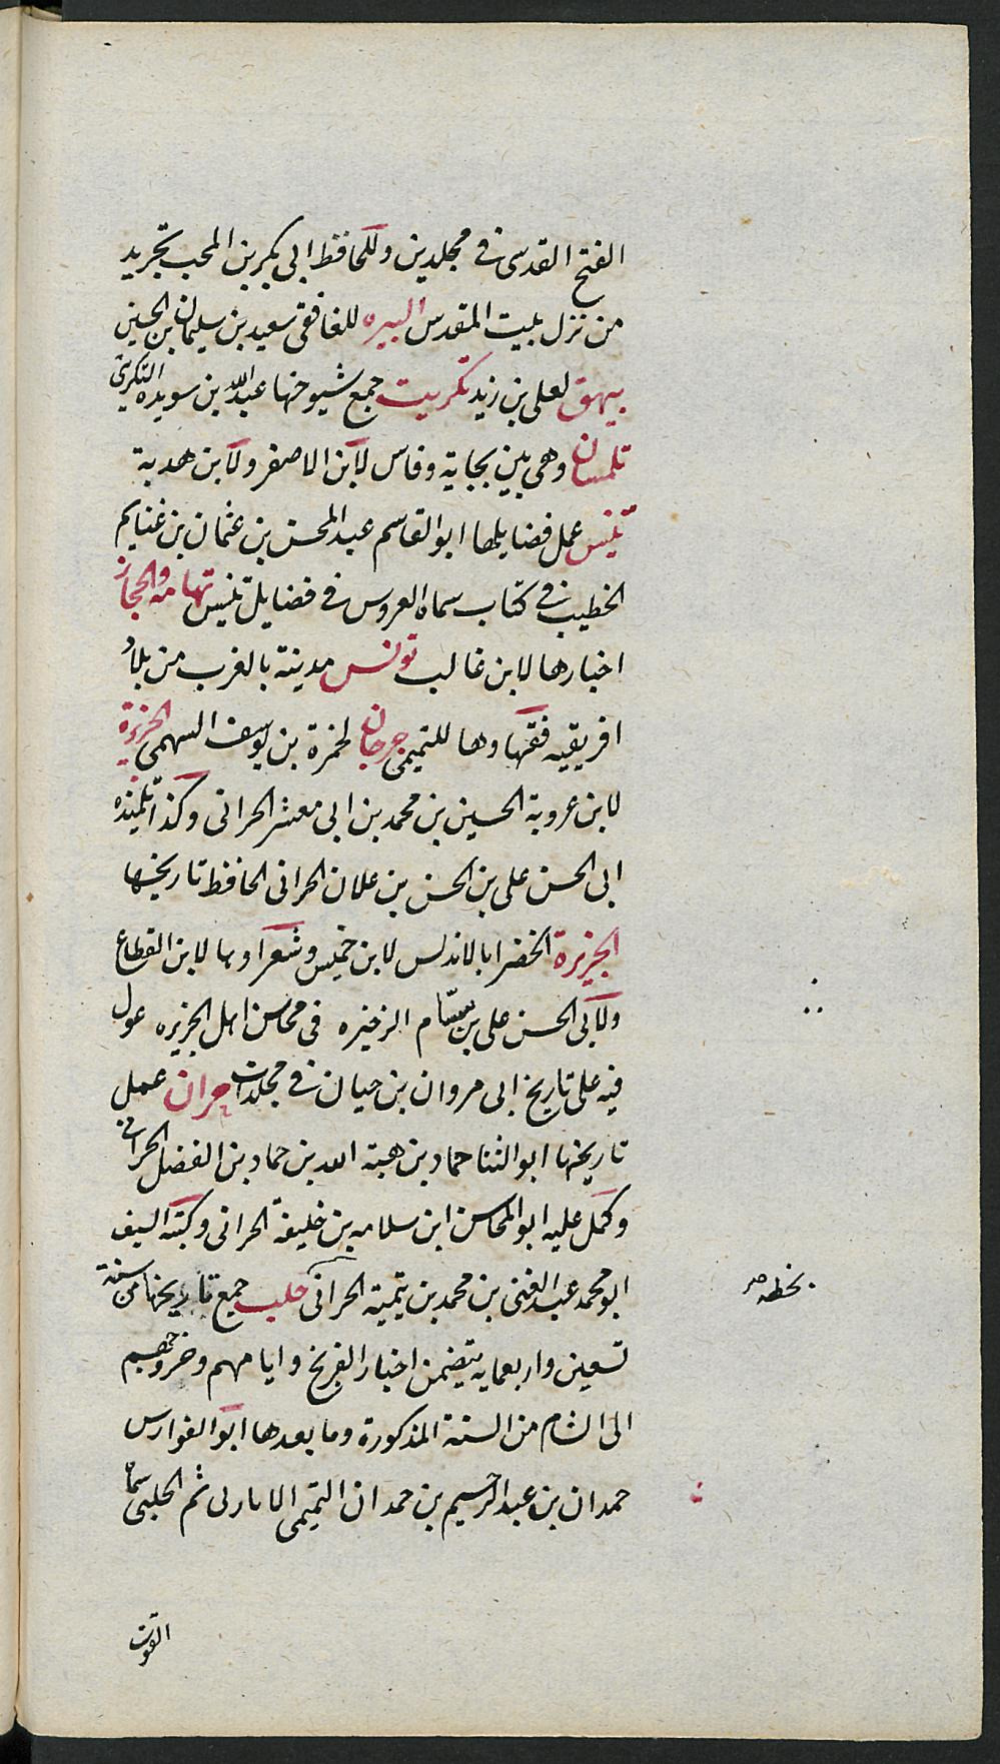 الفتح القدسى فى مجلدين وللحافظ ابى بكر بن المحب تجريد
من نزل ببيت المقدس البيره للغافقى سعيد بن سليمان بن الحسين
بيهق لعلى بن زيد تكريت جمع شيوخها عبد الله بن سويده التكريتى
تلمسان وهى بين بجاية وفاس لابن الاصفر ولابن هدية
تنيس عمل فضايلها ابو القاسم عبد المحسن بن عثمان بن غنايم
الخطيب فى كتاب سماه العروس فى فضايل تنيس تهامه والحجاز
اخبارها لابن غالب تونس مدينة بالغرب من بلاد
افريقيه فقهاوها للتميمى جرجان لحمزة بن يوسف السهمى الجزيرة
لابن عروبة الحسين بن محمد بن ابى معشر الحرانى وكذا تلميذه
ابى الحسن على بن الحسن بن علان الحرانى الحافظ تاريخها
الجزيرة الخضرا بالاندلس لابن خميس وشعراوها لابن القطاع
ولابى الحسن على بن بسّام الزخيره فى محاسن اهل الجزيره عول
فيه على تاريخ ابى مروان بن حيان فى مجلدات حران عمل
تاريخها ابو الثنا حماد بن هبة الله بن حماد بن الفضل الحرانى
وكمل عليه ابو المحاسن ابن سلامه بن خليفة الحرانى وكتبه السيف
ابو محمد عبد الغنى بن محمد بن تيمية الحرانى حلب جمع تاريخها من سنة
تسعين واربعمايه يتضمن اخبار الفرنج وايامهم وخروجهم
الى الشام من السنة المذكورة وما بعدها ابو الفوارس
حمدان بن عبد الرحيم بن حمدان التميمى الاباربى ثم الحلبى سماه
بخطه
القوت